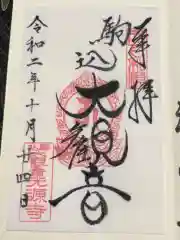 奉拝
駒込
大観音
令和二年十月廿四日
光源寺